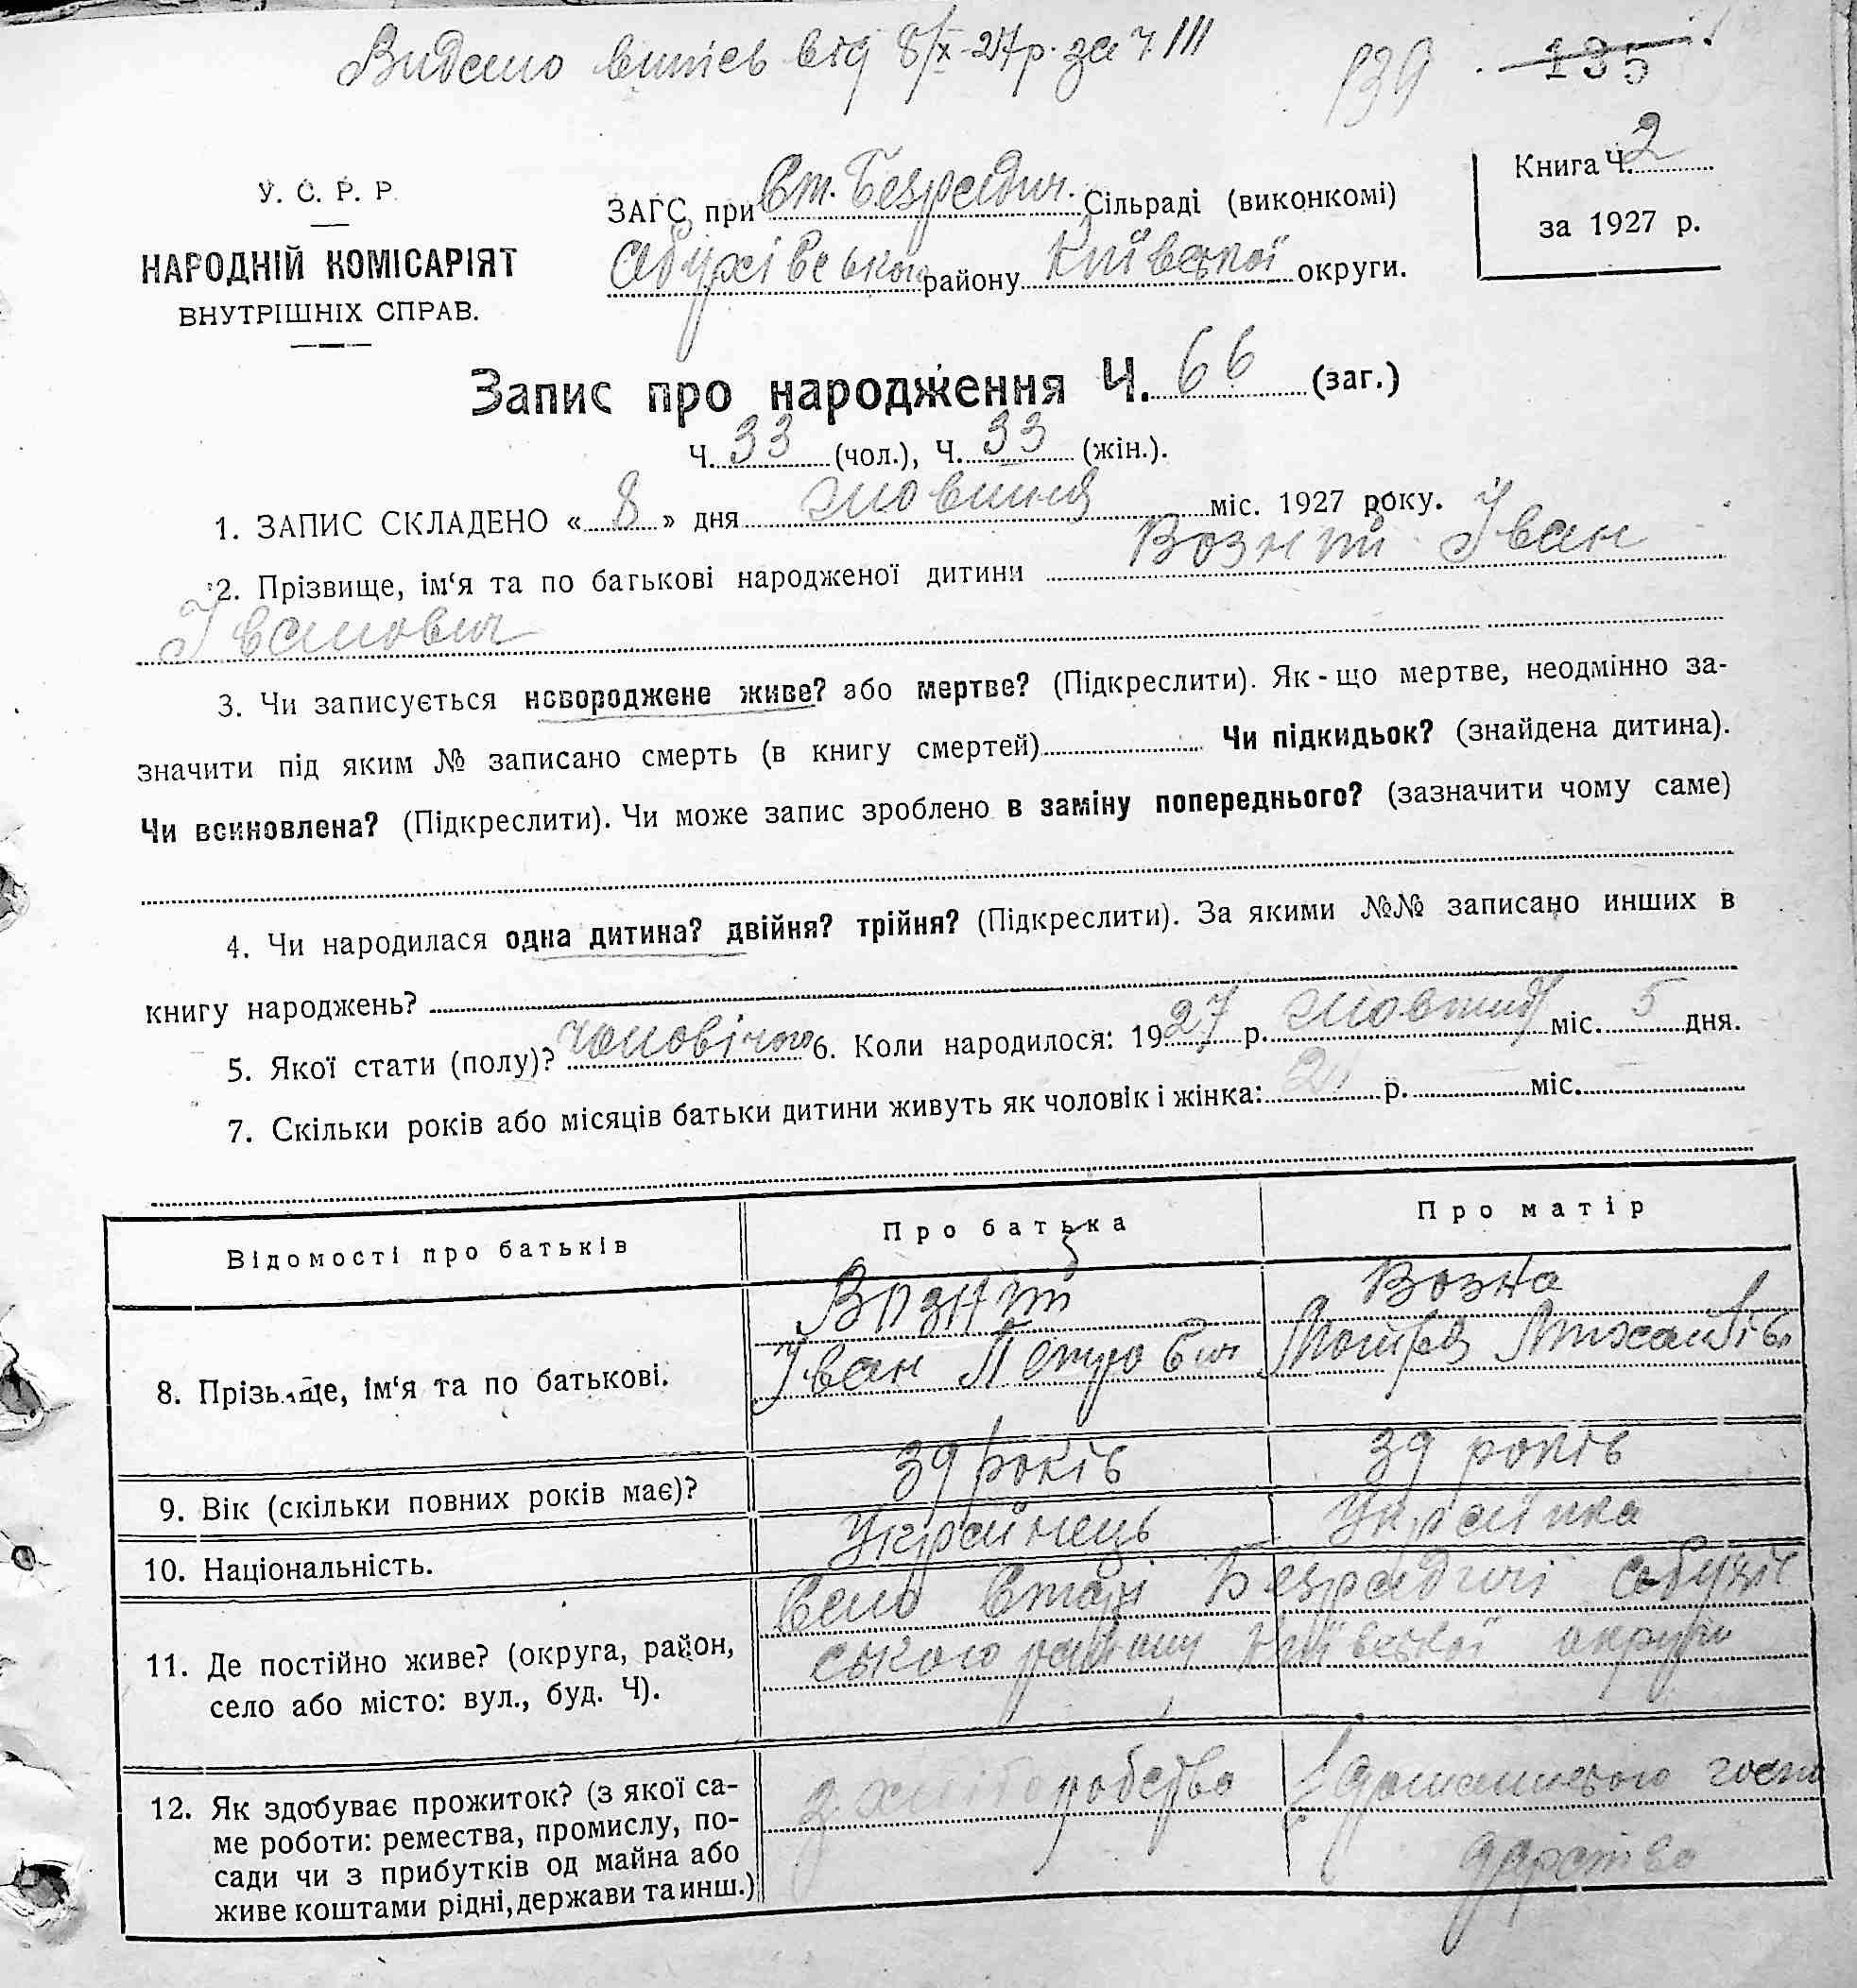 Видано витяг від 8/X-27р. за ч. 111
139 135
У. С. Р. Р.
НАРОДНІЙ КОМІСАРІЯТ
ВНУТРІШНІХ СПРАВ.
ЗАГС при Ст. Безрадич. Сільраді (виконкомі)
Обухівського району Київської округи.
Книга Ч. 2
за 1927 р.
Запис про народження Ч. 66 (заг.)
Ч. 33 (чол.), Ч. 33 (жін.).
1. ЗАПИС СКЛАДЕНО « 8 » дня жовтня міс. 1927 року.
2. Прізвище, ім‘я та по батькові народженої дитини Возний Іван
Іванович
3. Чи записується новороджене живе? або мертве? (Підкреслити). Як-що мертве, неодмінно за-
значити під яким № записано смерть (в книгу смертей) Чи підкидьок? (знайдена дитина).
Чи всиновлена? (Підкреслити). Чи може запис зроблено в заміну попереднього? (зазначити чому саме)
4. Чи народилася одна дитина? двійня? трійня? (Підкреслити). За якими №№ записано инших в
книгу народжень?
5. Якої стати (полу)? чоловічого 6. Коли народилося: 1927 р. жовтня міс. 5 дня.
7. Скільки років або місяців батьки дитини живуть як чоловік і жінка: р. міс.
Відомості про батьків Про батька Про матір
8. Прізвище, ім‘я та по батькові.
Возний
Іван Петрович
Возна
Мотря Михайлів
9. Вік (скільки повних років має)? 39 років 39 років
10. Національність. Українець Українка
11. Де постійно живе? (округа, район,
село або місто: вул., буд. Ч).
Село Старі Безрадичі Обухів
ського району Київської округи
12. Як здобуває прожиток? (з якої са-
ме роботи: ремества, промислу, по-
сади чи з прибутків од майна або
живе коштами рідні, держави та инш.)
з хліборобства
з домашнього госпо
дарства